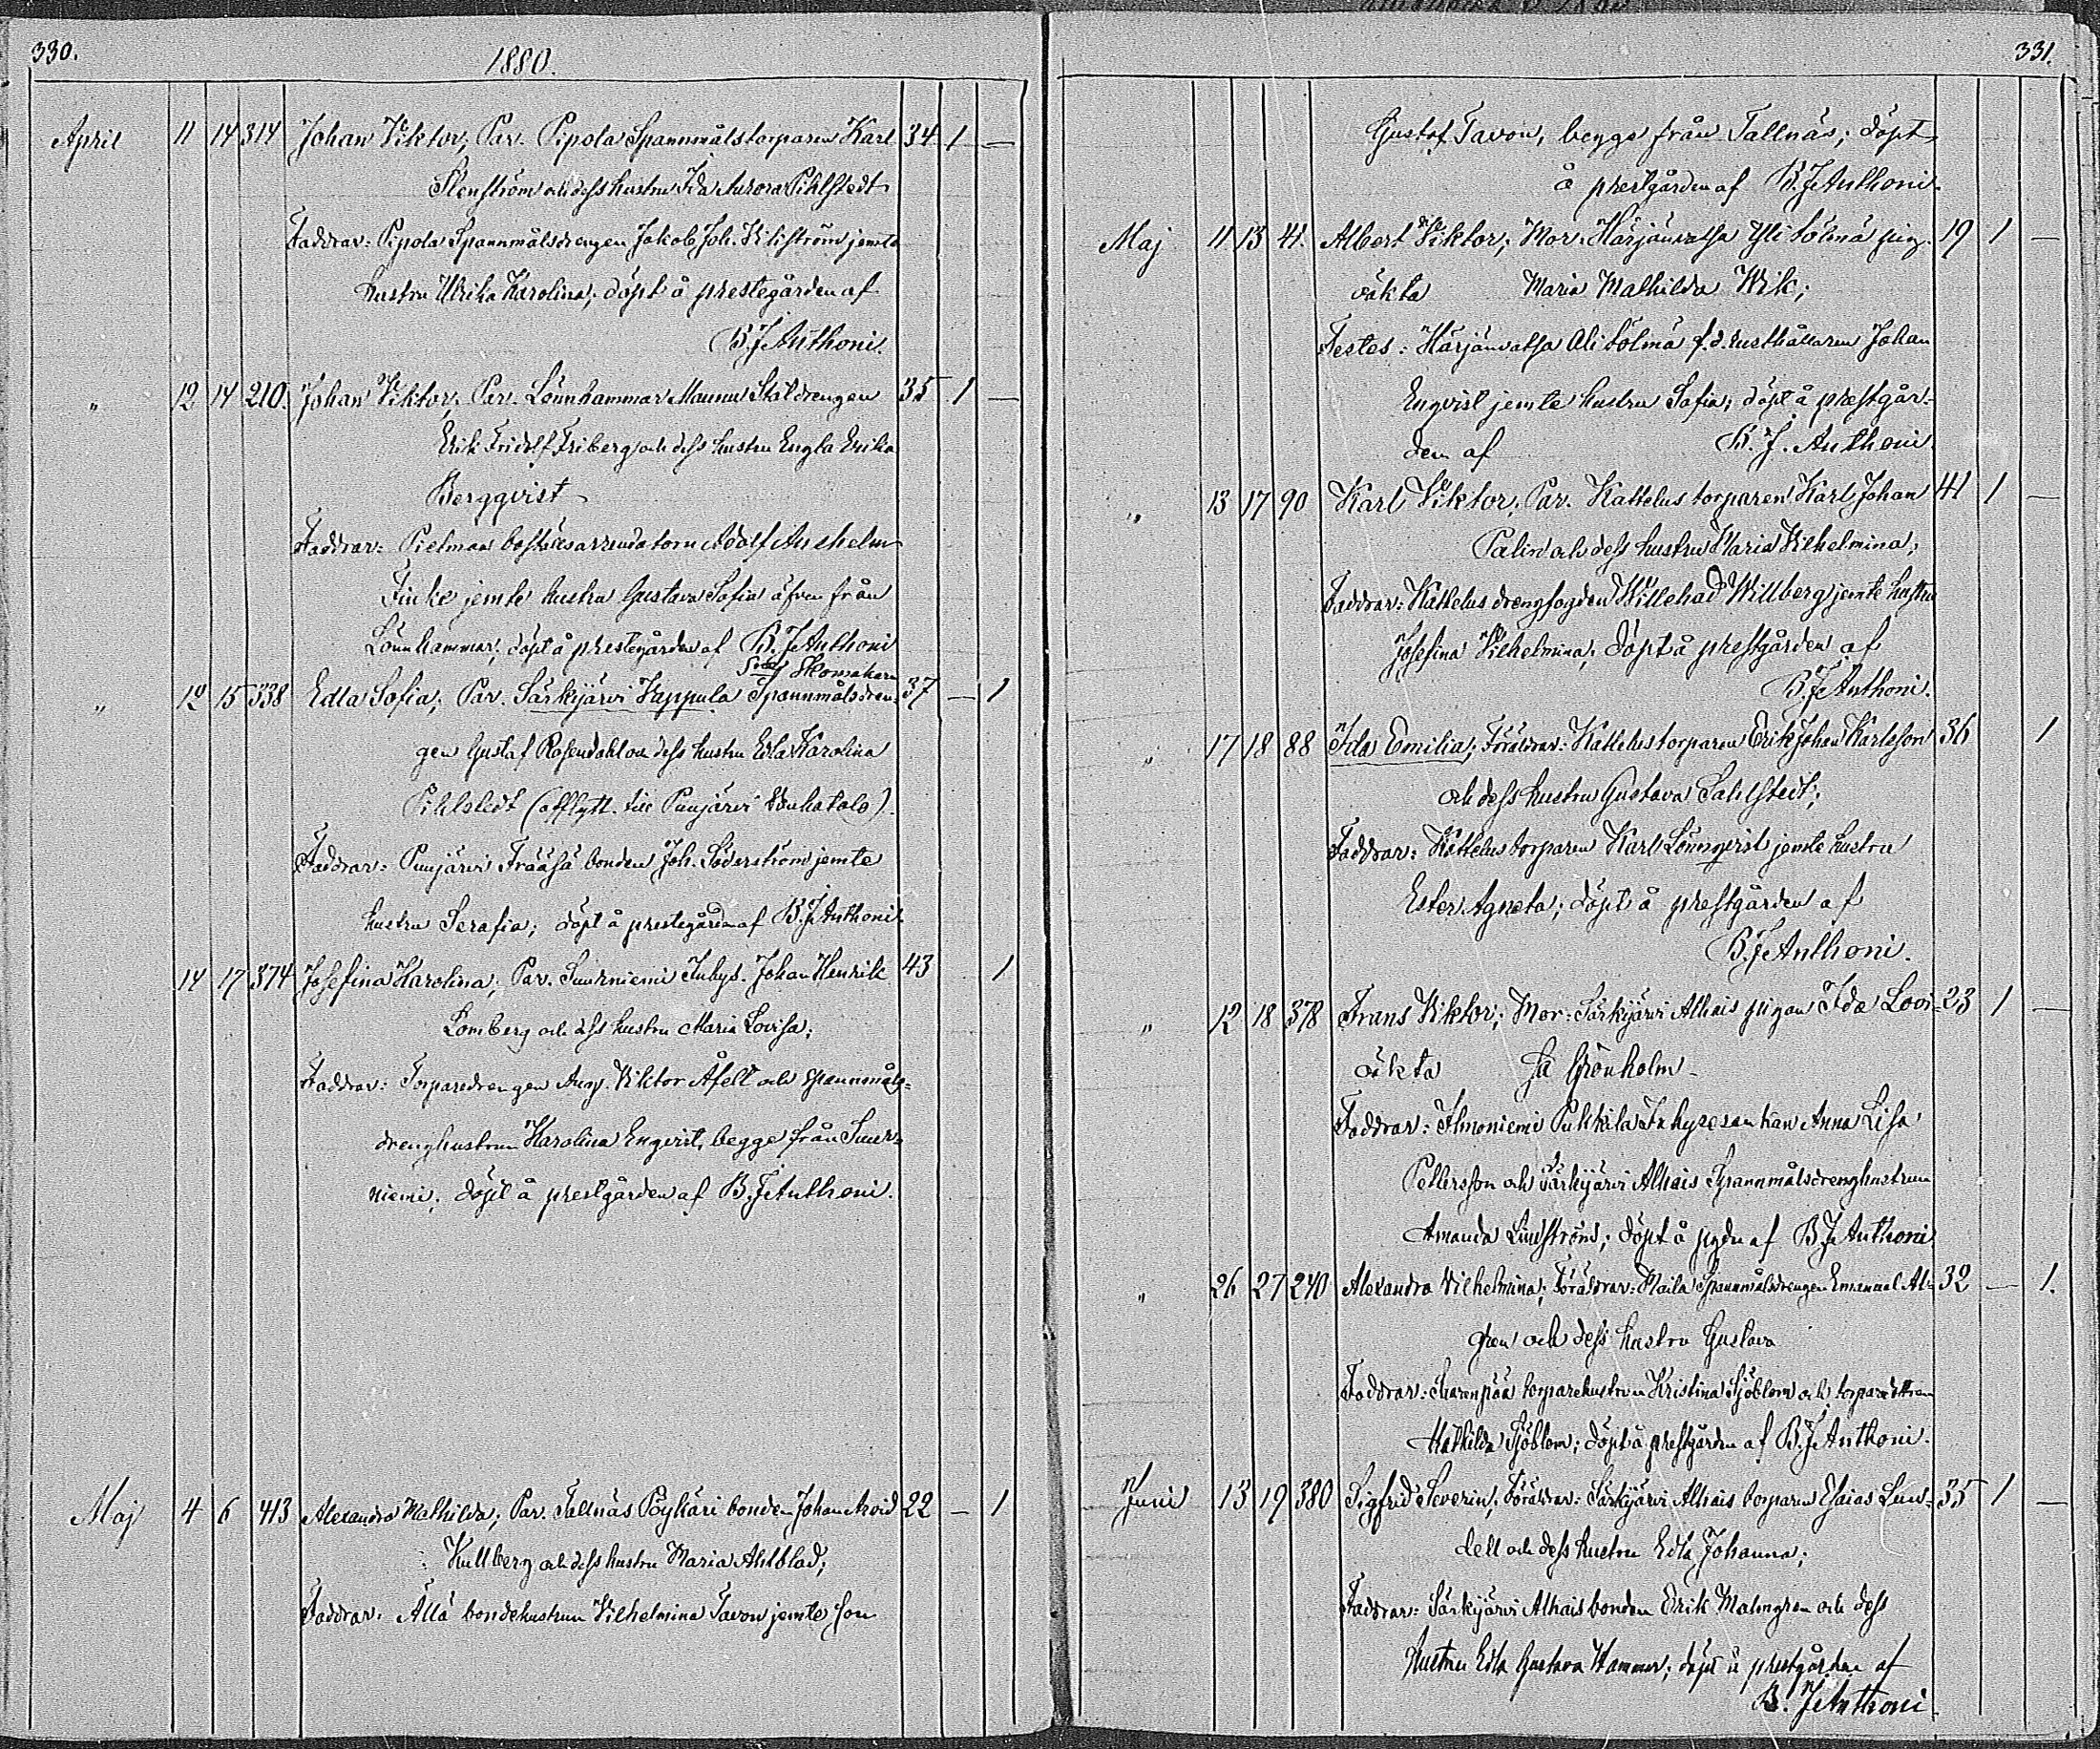 330.
1880.
April 11 14 314 Johan Viktor; Par. Pipola Spannmålstorparen Karl 34 1 —
Stenström och dess hustru Ida Aurora Pihlstedt
Faddrar: Pipola Spannmålsdrengen Jakob Joh. jemte
hustru Ulrika Karolina; döpt å prestegården af
B. F. Anthoni.
" 12 14 210. Johan Viktor; Par. Lönnhammar Maunu Staldrengen 35 1 —
Erik Fridolf Friberg och dess hustru Engla Erika
Bergqvist
Faddrar: Pietmaa bostälesarrendatorn Adolf Anshelm
Finke jemte hustru Gustava Sofia äfven från
Lönnhammar; döpt å prestegården af B. F. Anthoni
Skomakaren
" 12 15 338 Edla Sofia; Par. Särkijärvi Vappula Spannmålsdren- 37 — 1
gen Gustaf Rosendahl och dess hustru Edla Karolina
Pihlstedt (afflytt. till Punjärvi Vanhatalo).
Faddrar: Punjärvi Frääsä bonden Joh. Söderström jemte
hustru Serafia; döpt å prestegården af B. F. Anthoni
14 17 374 Josefina Karolina; Par. Suurniemi Inhys. Johan Henrik 43 1
Lomberg och dess hustru Maria Lovisa;
Faddrar: Torparedrengen Aug. Viktor Åfelt och spannmåls-
drenghustrun Karolina Engvist, begge från Suur-
niemi; döpt å prestgården af B. F. Anthoni.
Maj 4 6 413 Alexandra Mathilda; Par. Tallnäs Pöyhäri bonden Johan Arvid 22 — 1
Kullberg och dess hustru Maria Ahlblad;
Faddrar: Ällä bondehustrun Vilhelmina Tavon jemte son
331.
Gustaf Tavon, begge från Tallnäs; döpt
å prestgården af B. F. Anthoni.
Maj 11 13 41. Albert Viktor; Mor: Härjänvatsa Yli Sölmä pig. 19 1 —
oäkta Maria Mathilda Wik;
Testes: Härjänvatsa Ali Sölmä f.d. rusthållaren Johan
Engvist jemte hustru Sofia; döpt å prestgår-
den af B. F. Anthoni
" 13 17 90 Karl Viktor; Par. Kattelus torparen Karl Johan 41 1 —
Palin och dess hustru Maria Vilhelmina;
Faddrar: Kattelus drengfogden Willehad Willberg jemte hustru
Josefina Vilhelmina; döpt å prestgården af
B. F. Anthoni.
" 17 18 88 Ida Emilia; Föräldrar: Kattelus torparen Erik Johan Karlsson 36 1
och dess hustru Gustava Sahlstedt;
Faddrar: Kattelus torparen Karl Lönnqvist jemte hustru
Ester Agneta; döpt å prestgården af
B. F. Anthoni.
" 12 18 378 Frans Viktor; Mor: Särkijärvi Alhais pigan Ida Lovi- 23 1 —
oäkta sa Grönholm
Faddrar: Ilmoniemi Puhkila Inhysesenkan Anna Lisa
Pettersson och Särkijärvi Alhais Spannmålsdrenghustrun
Amanda Lindström; döpt å pgdn af B. F. Anthoni
" 26 27 240 Alexandra Vilhelmina; Föräldrar: Maila Spannmålsdrengen Emanuel Al- 32 — 1.
gren och dess hustru Gustava
Faddrar: Haarenpää torparehustrun Kristina Sjöblom och torparedottren
Mathilda Sjöblom; döpt å prestgården af B. F. Anthoni.
Juni 13 19 380 Sigfrid Severin; Föräldrar: Särkijärvi Alhais torparen Esaias Lun- 35 1 —
dell och dess hustru Edla Johanna;
Faddrar: Särkijärvi Alhais bonden Erik Malmgren och dess
Hustru Edla Gustava Hammar; döpt å prestgården af
B. F. Anthoni